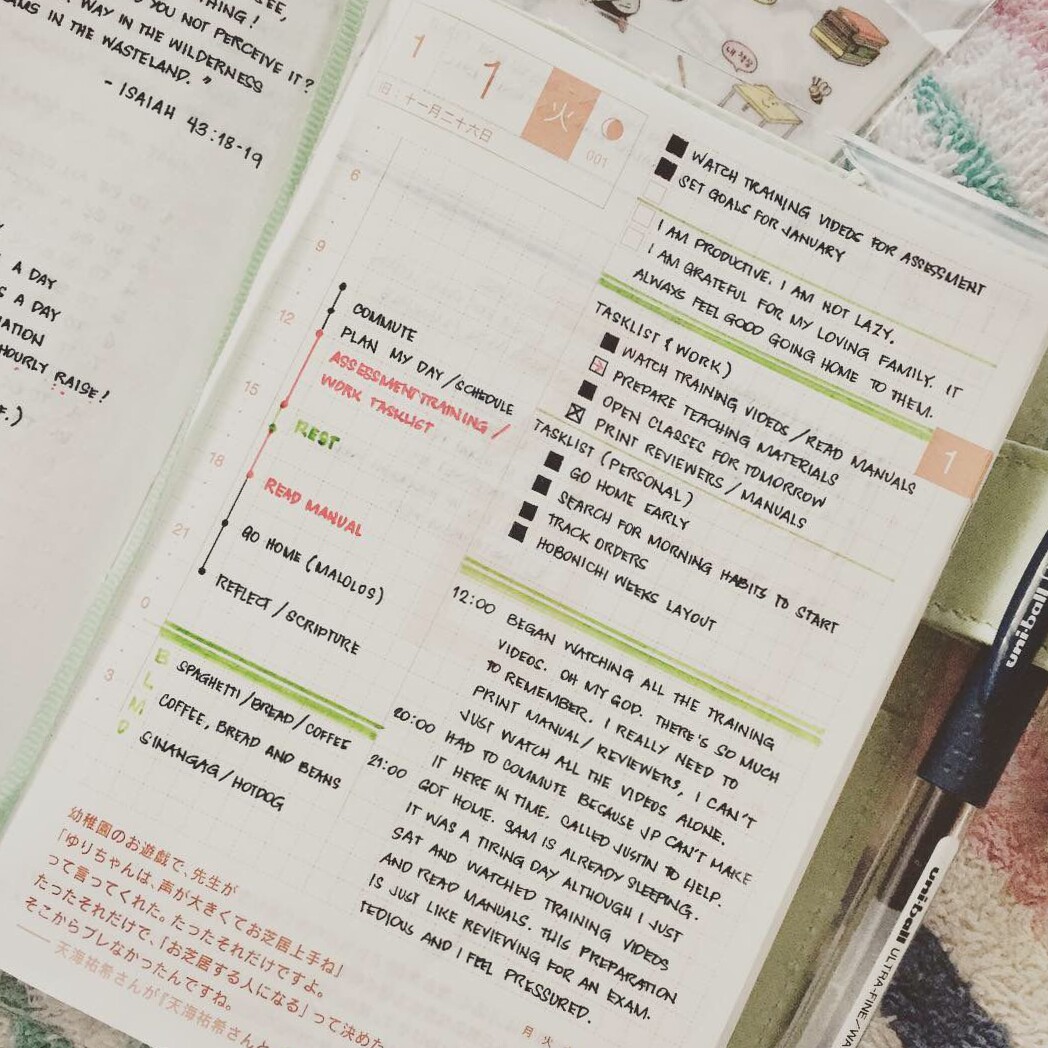 THING!
YOU NOT PERCEIVE IT?
WAY IN THE WILDERNESS
IN THE WASTELAND."
- ISAIAH 43:18-19
A DAY
A DAY
HOURLY RAISE!
1 1 火
旧:十一月二十六日
001
내 책상
6
9
12
15
18
21
0
3
COMMUTE
PLAN MY DAY/SCHEDULE
ASSESSMENT TRAINING /
WORK TASKLIST
REST
READ MANUAL
GO HOME (MALOLOS)
REFLECT/SCRIPTURE
B SPAGHETTI/BREAD/COFFEE
L COFFEE, BREAD AND BEANS
M
D SINANGAG/HOTDOG
幼稚園のお遊戯で、先生が
「ゆりちゃんは、声が大きくてお芝居上手ね」
って言ってくれた。たったそれだけですよ。
たったそれだけで、「お芝居する人になる」って決めた
そこからブレなかったんですね。
──天海祐希さんが『天海祐希さんと
WATCH TRAINING VIDEOS FOR ASSESSMENT
SET GOALS FOR JANUARY
I AM PRODUCTIVE. I AM NOT LAZY.
I AM GRATEFUL FOR MY LOVING FAMILY. IT
ALWAYS FEEL GOOD GOING HOME TO THEM.
TASKLIST (WORK)
WATCH TRAINING VIDEOS/READ MANUALS
PREPARE TEACHING MATERIALS
OPEN CLASSES FOR TOMORROW
PRINT REVIEWERS/MANUALS
TASKLIST (PERSONAL)
GO HOME EARLY
SEARCH FOR MORNING HABITS TO START
TRACK ORDERS
HOBONICHI WEEKS LAYOUT
1
12:00 BEGAN WATCHING ALL THE TRAINING
VIDEOS. OH MY GOD. THERE'S SO MUCH
TO REMEMBER. I REALLY NEED TO
PRINT MANUAL/REVIEWERS, I CAN'T
JUST WATCH ALL THE VIDEOS ALONE.
20:00 HAD TO COMMUTE BECAUSE JP CAN'T MAKE
IT HERE IN TIME. CALLED JUSTIN TO HELP.
21:00 GOT HOME. SAM IS ALREADY SLEEPING.
IT WAS A TIRING DAY ALTHOUGH I JUST
SAT AND WATCHED TRAINING VIDEOS
AND READ MANUALS. THIS PREPARATION
IS JUST LIKE REVIEWING FOR AN EXAM.
TEDIOUS AND I FEEL PRESSURED.
月 火
uni-ball
uni-ball ULTRA-FINE/WA